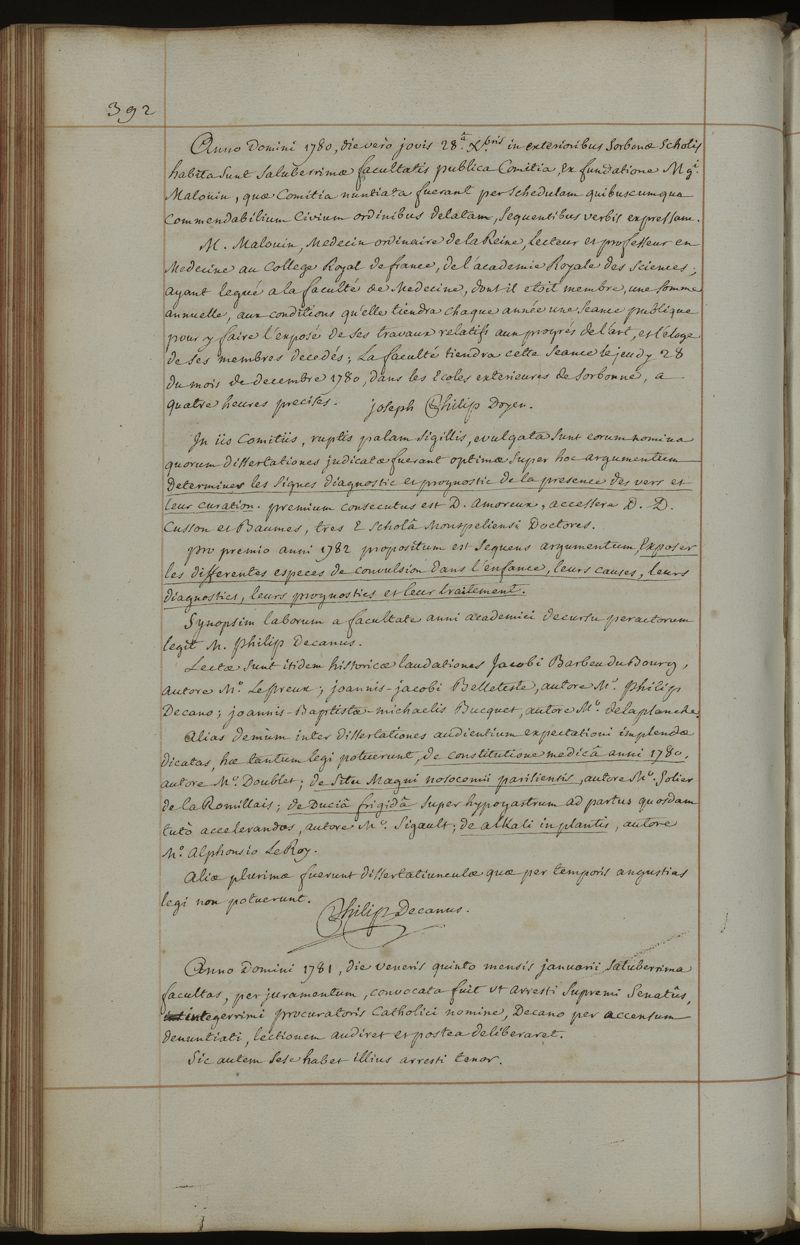 392
Anno Domini 1780, die verò jovis 28.ª Xbris in exterioribus Sorbonæ Scholis
habita sunt saluberrimæ facultatis publica Comitia, Ex fundatione Mgi.
Malouin, quæ Comitia nuntiata fuerant per schedulam quibuscumque
Commendabilium Civium ordinibus delatam, sequentibus verbis expressam.
M. Malouin, Medecin ordinaire de la Reine, lecteur et professeur en
Medecine au College Royal de france, de l'academie Royale des sciences;
ayant legué a la faculté de Medecine, dont il etoit membre, une somme
annuelle, aux conditions qu'elle tiendra chaque année une seance publique
pour y faire l'exposé de ses travaux relatifs aux progrés de l'art, et l'éloge
de ses membres decedés; La faculté tiendra cette seance le jeudy 28
du mois de decembre 1780, dans les Ecoles exterieures de Sorbonne, a
quatre heures precises. joseph Philip Doyen.
In iis Comitiis, ruptis palam sigillis, evulgata sunt eorum nomina
quorum dissertationes judicatæ fuerant optimæ super hoc argumentum
Determiner les signes diagnostic et prognostic de la presence des vers et
leur curation. premium consecutus est D. amoreux, accessere D. D.
Cusson et Baumes, tres è scholâ Monspeliensi Doctores.
pro premio anni 1782 propositum est sequens argumentum Exposer
les differentes especes de convulsion dans l'enfance, leurs causes, leurs
diagnostics, leurs prognostics et leur traitement.
Synopsim laborum a facultate anni academici decursu peractorum
legit M. philip Decanus.
Lectæ sunt itidem historicæ laudationes Jacobi Barbeu du Bourg,
autore Mo. Lepreux; joannis-jacobi Belleteste, autore Mo. philip
Decano; joannis-Baptistæ-michaelis Bucquet, autore Mo. de la planche.
Alias demùm inter dissertationes audientium expectationi implendæ
dicatas, hæ tantum legi potuerunt, de constitutione medicâ anni 1780.
autore Mo. Doublet; de situ Magni nosocomii parisiensis, autore Mo. Solier
de la Romillais; de Duciâ frigidâ super hypogastrum ad partus quosdam
tutò accelerandos, autore Mo. Sigault; de alkali in plantis, autore
Mo. alphonsio LeRoy.
Aliæ plurimæ fuerunt dissertatiunculæ quæ per temporis angustias
legi non potuerunt.
Philip Decanus.
Anno Domini 1781, die veneris quinto mensis januarii saluberrima
facultas, per juramentum, convocata fuit ut arresti supremi Senatûs,
integerrimi procuratoris Catholici nomine, Decano per accensum
denuntiati, lectionem audiret et postea deliberaret.
Sic autem sese habet illius arresti tenor.